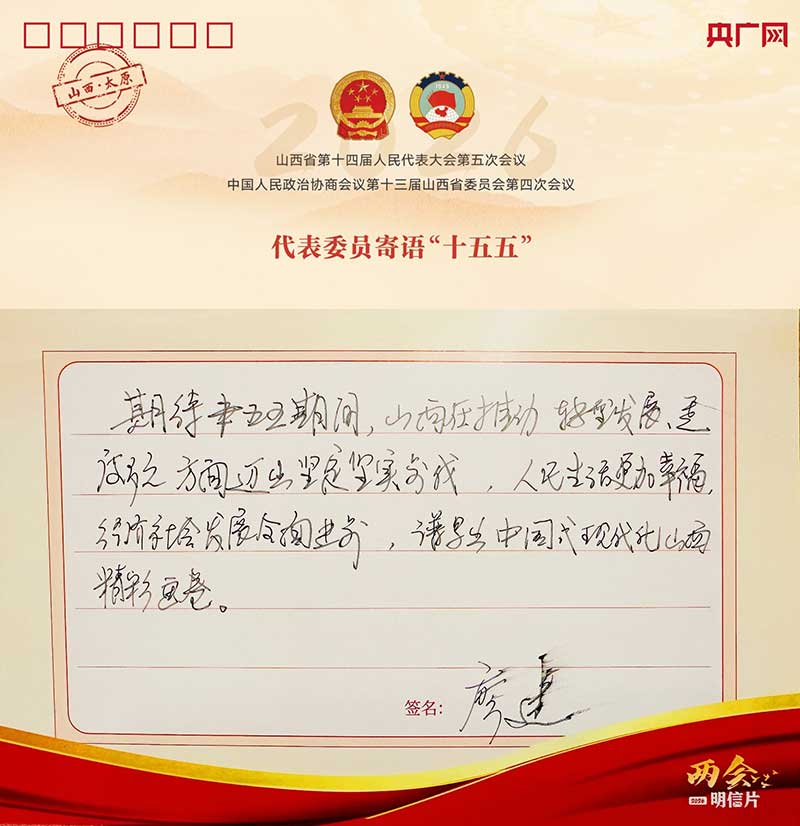 央广网
山西·太原
2026
1949
山西省第十四届人民代表大会第五次会议
中国人民政治协商会议第十三届山西省委员会第四次会议
代表委员寄语“十五五”
期待十五五期间，山西在推动转型发展、建
设多元方面迈出坚定坚实步伐，人民生活更加幸福，
经济社会发展全面进步，谱写出中国式现代化山西
精彩画卷。
签名：
廖建
两会
2026 明信片